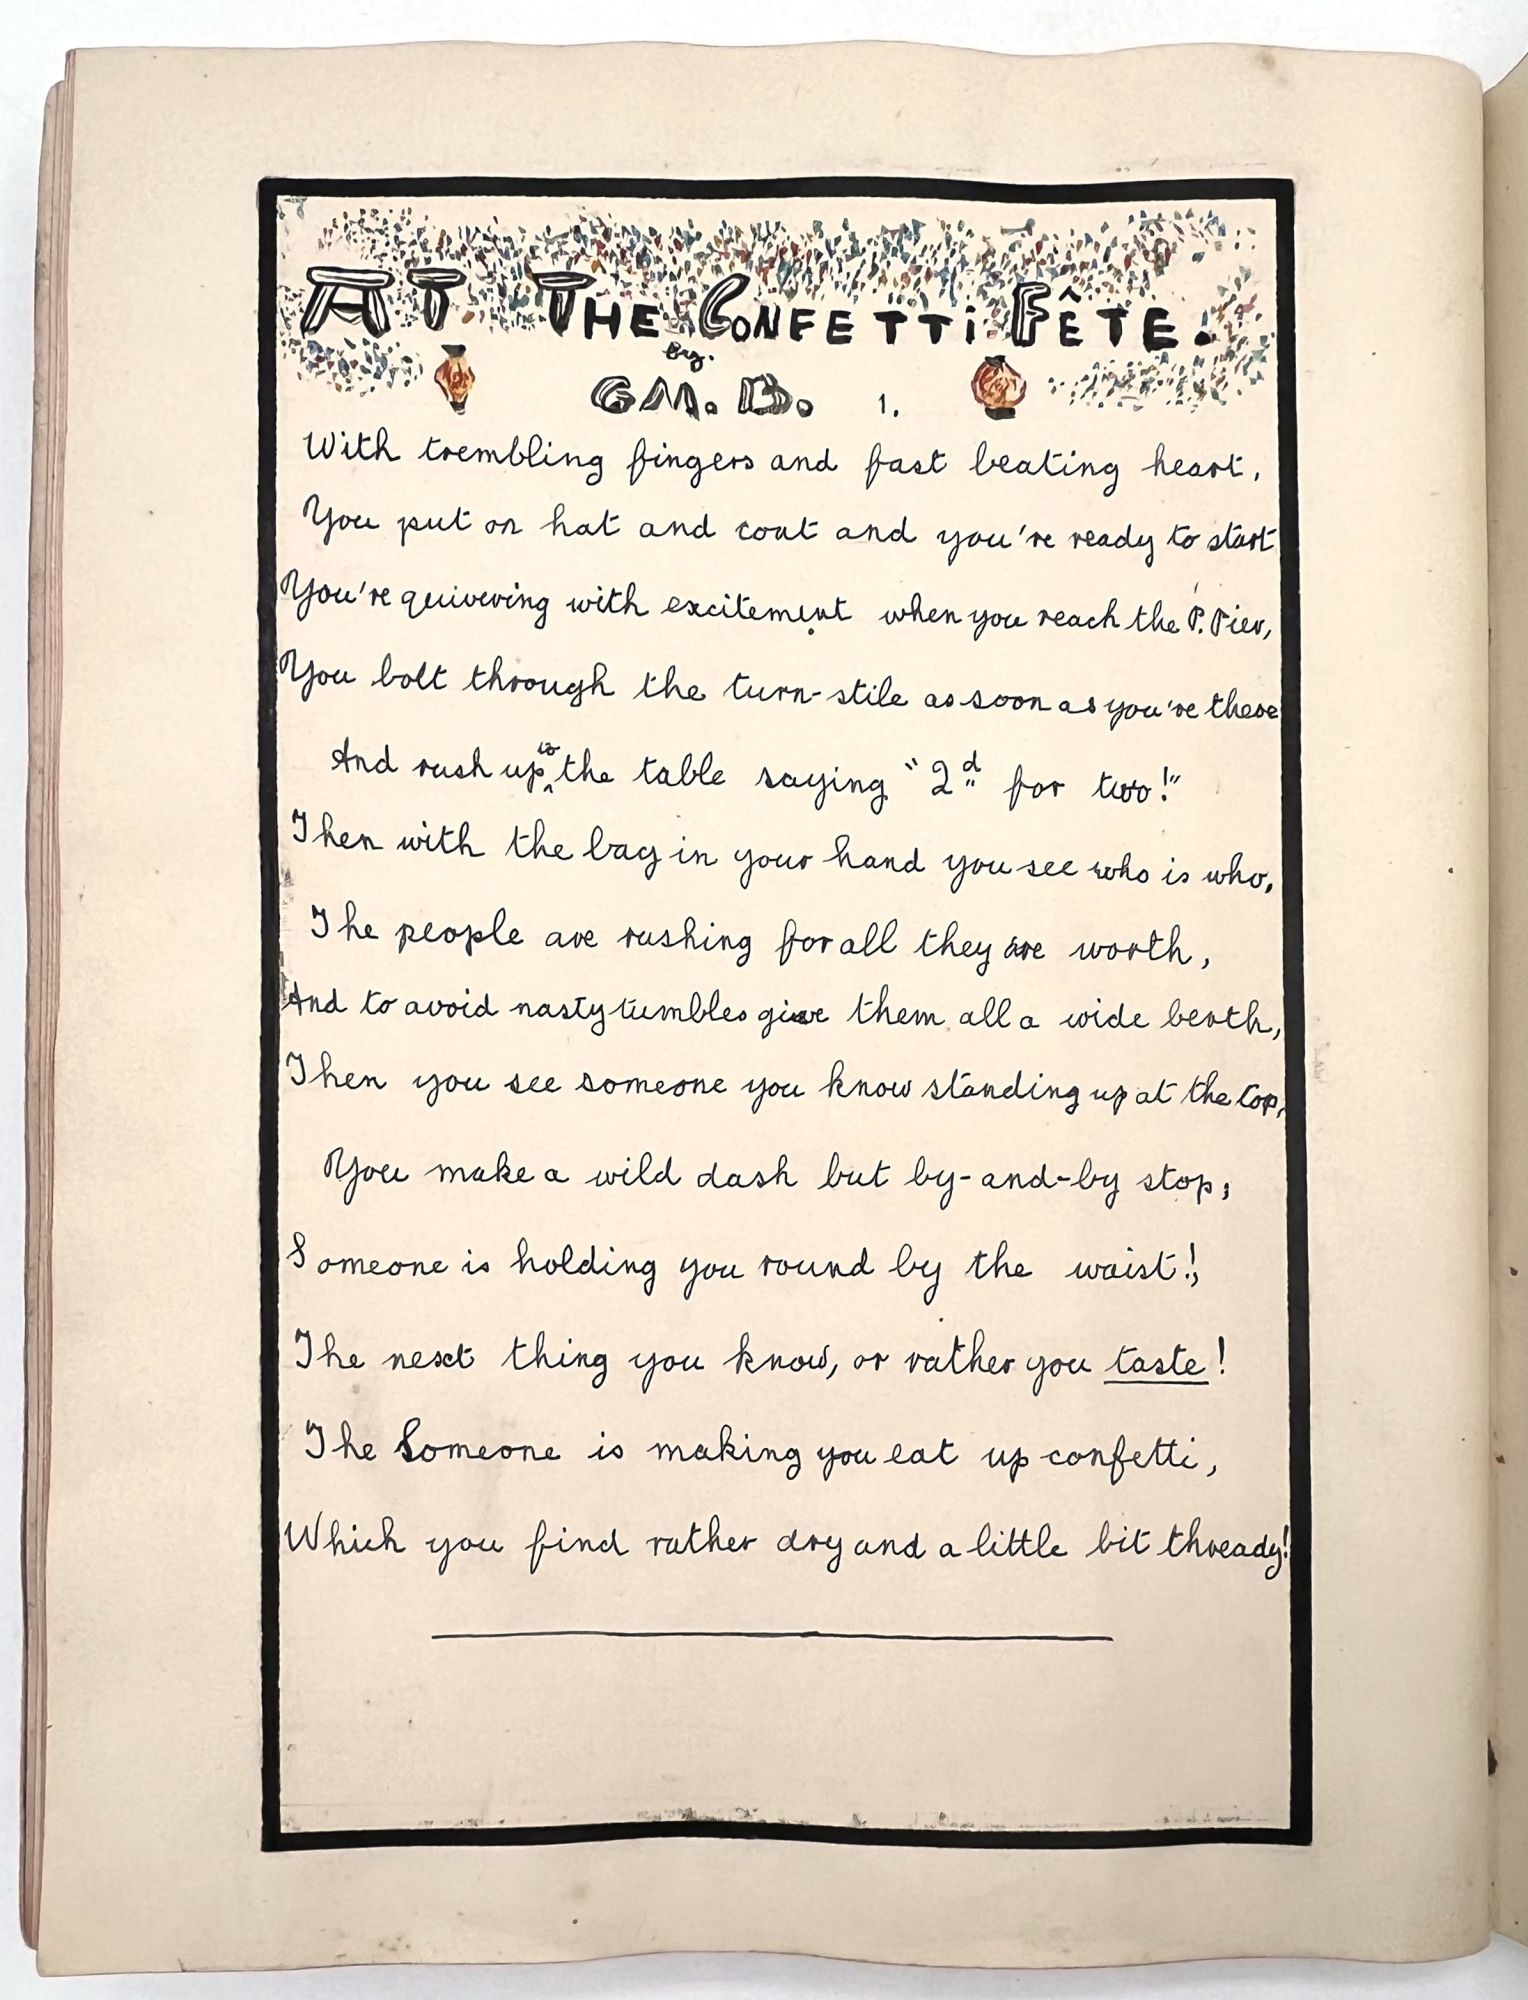 AT THE CONFETTI FÊTE.
by.
G.M. B.
1.
With trembling fingers and fast beating heart,
You put on hat and coat and you're ready to start
You're quivering with excitement when you reach the P. Pier,
You bolt through the turn-stile as soon as you're there
And rush up to the table saying "2d for two!"
Then with the bag in your hand you see who is who,
The people are rushing for all they are worth,
And to avoid nasty tumbles give them all a wide berth,
Then you see someone you know standing up at the top,
You make a wild dash but by-and-by stop,
Someone is holding you round by the waist!,
The next thing you know, or rather you taste!
The Someone is making you eat up confetti,
Which you find rather dry and a little bit thready!